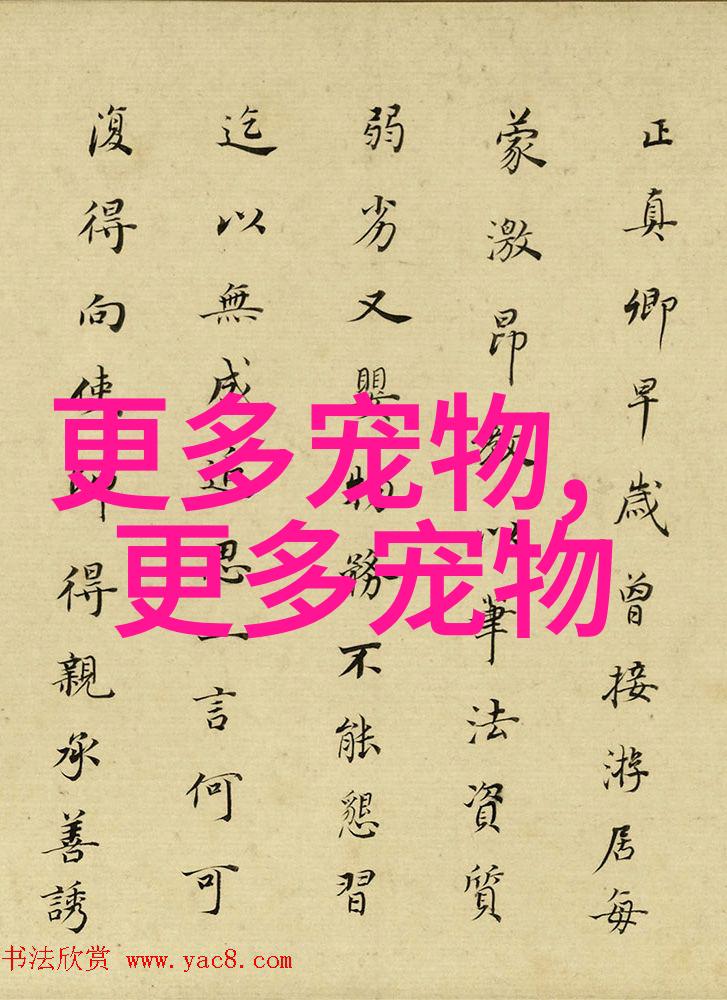 正真卿早歲曾接游居每
蒙激昂教以筆法資質
弱劣又嬰物務不能懇習
迄以無成近思一言何可
復得向使得親承善誘
更多宠物,
更多宠物
书法欣赏 www.yac8.com